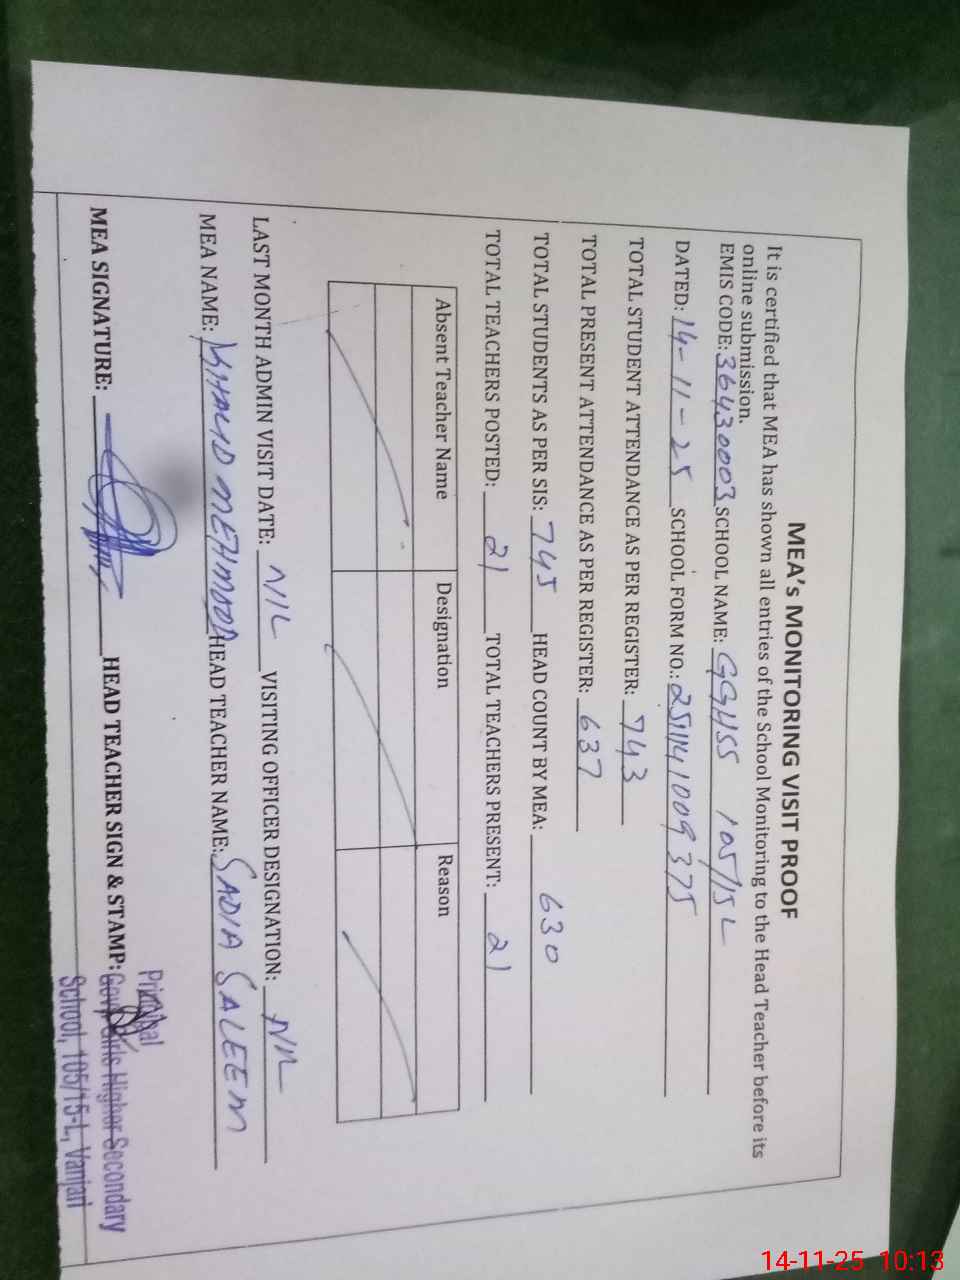 MEA's MONITORING VISIT PROOF
It is certified that MEA has shown all entries of the School Monitoring to the Head Teacher before its
online submission.
EMIS CODE: 36430003 SCHOOL NAME: GGHSS 105/15L
DATED: 14-11-25 SCHOOL FORM NO.: 251141009375
TOTAL STUDENT ATTENDANCE AS PER REGISTER: 743
TOTAL PRESENT ATTENDANCE AS PER REGISTER: 637
TOTAL STUDENTS AS PER SIS: 745 HEAD COUNT BY MEA: 630
TOTAL TEACHERS POSTED: 21 TOTAL TEACHERS PRESENT: 21
Absent Teacher Name Designation Reason
LAST MONTH ADMIN VISIT DATE: NIL VISITING OFFICER DESIGNATION: NIL
MEA NAME: KHALID MEHMOOD HEAD TEACHER NAME: SADIA SALEEM
MEA SIGNATURE: HEAD TEACHER SIGN & STAMP:
Principal
Govt. Girls Higher Secondary
School, 105/15-L, Vanjari
14-11-25 10:13